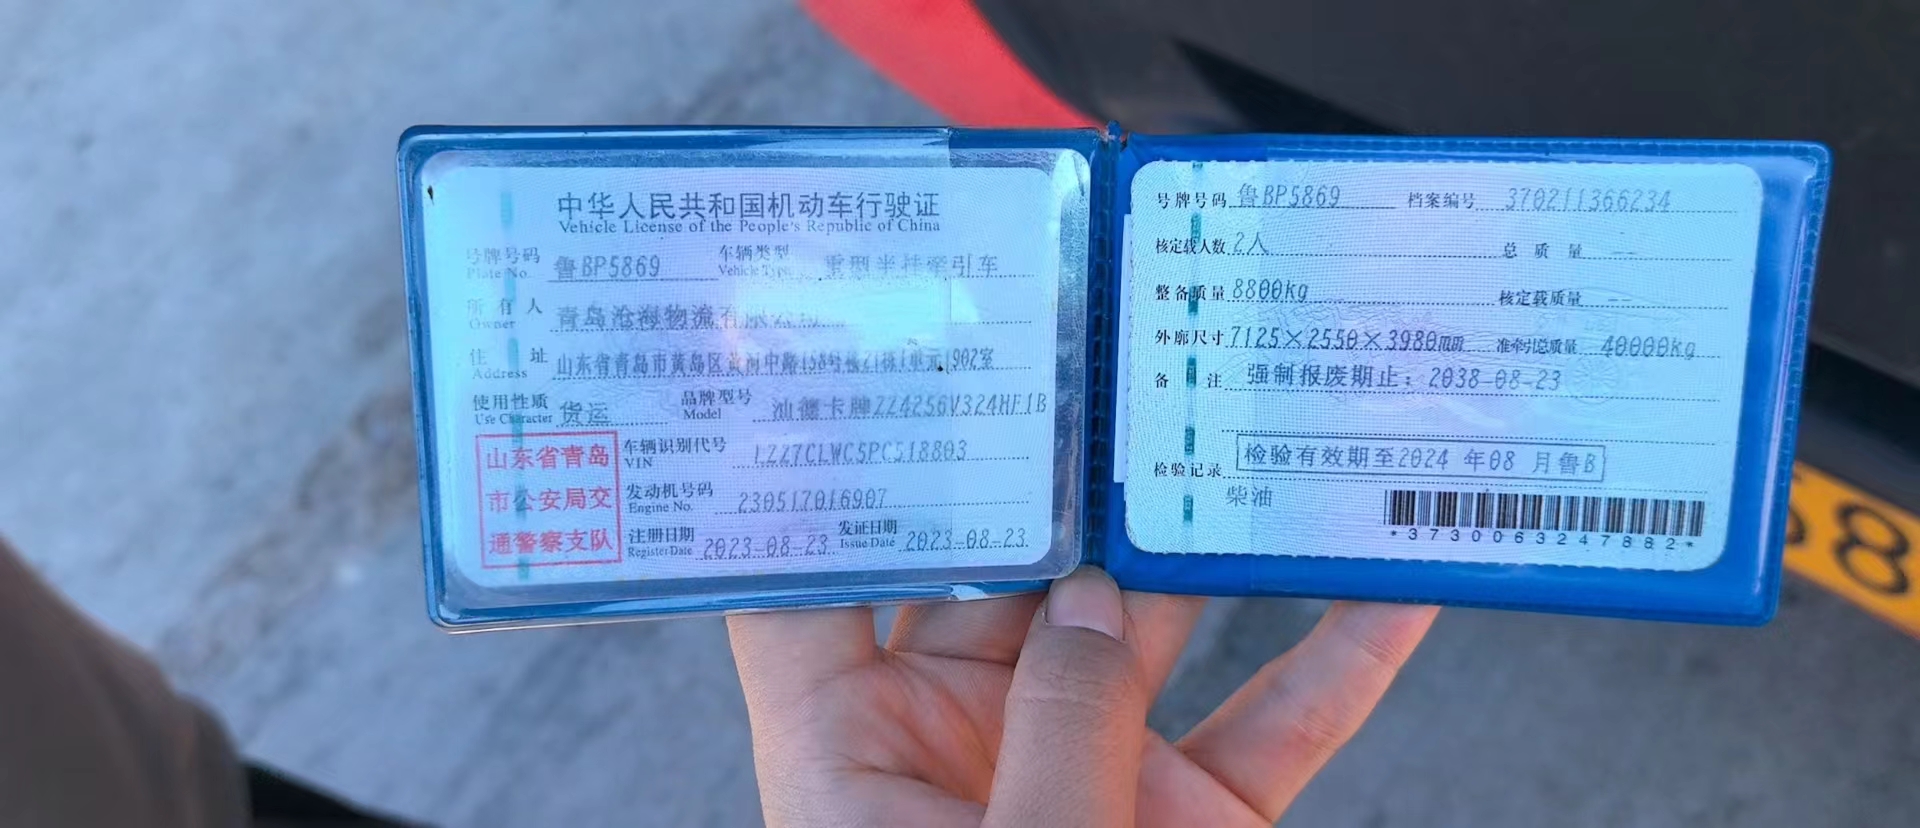 中华人民共和国机动车行驶证
Vehicle License of the People's Republic of China
号牌号码 鲁BP5869 车辆类型 重型半挂牵引车
Plate No. Vehicle Type
所有人 青岛沧海物流有限公司
Owner
住址 山东省青岛市黄岛区黄河中路158号 21栋1单元1902室
Address
使用性质 货运 品牌型号 汕德卡牌ZZ4256V324HF1B
Use Character Model
山东省青岛
市公安局交
通警察支队
车辆识别代号 LZZ7CLWC5PC518803
VIN
发动机号码 230517016907
Engine No.
注册日期 2023-08-23 发证日期 2023-08-23
Register Date Issue Date
号牌号码 鲁BP5869 档案编号 370211366234
核定载人数 2人 总质量 --
整备质量 8800kg 核定载质量 --
外廓尺寸 7125×2550×3980mm 准牵引总质量 40000kg
备注 强制报废期止：2038-08-23
检验记录 检验有效期至2024年08月鲁B
柴油
*3730063247882*
68